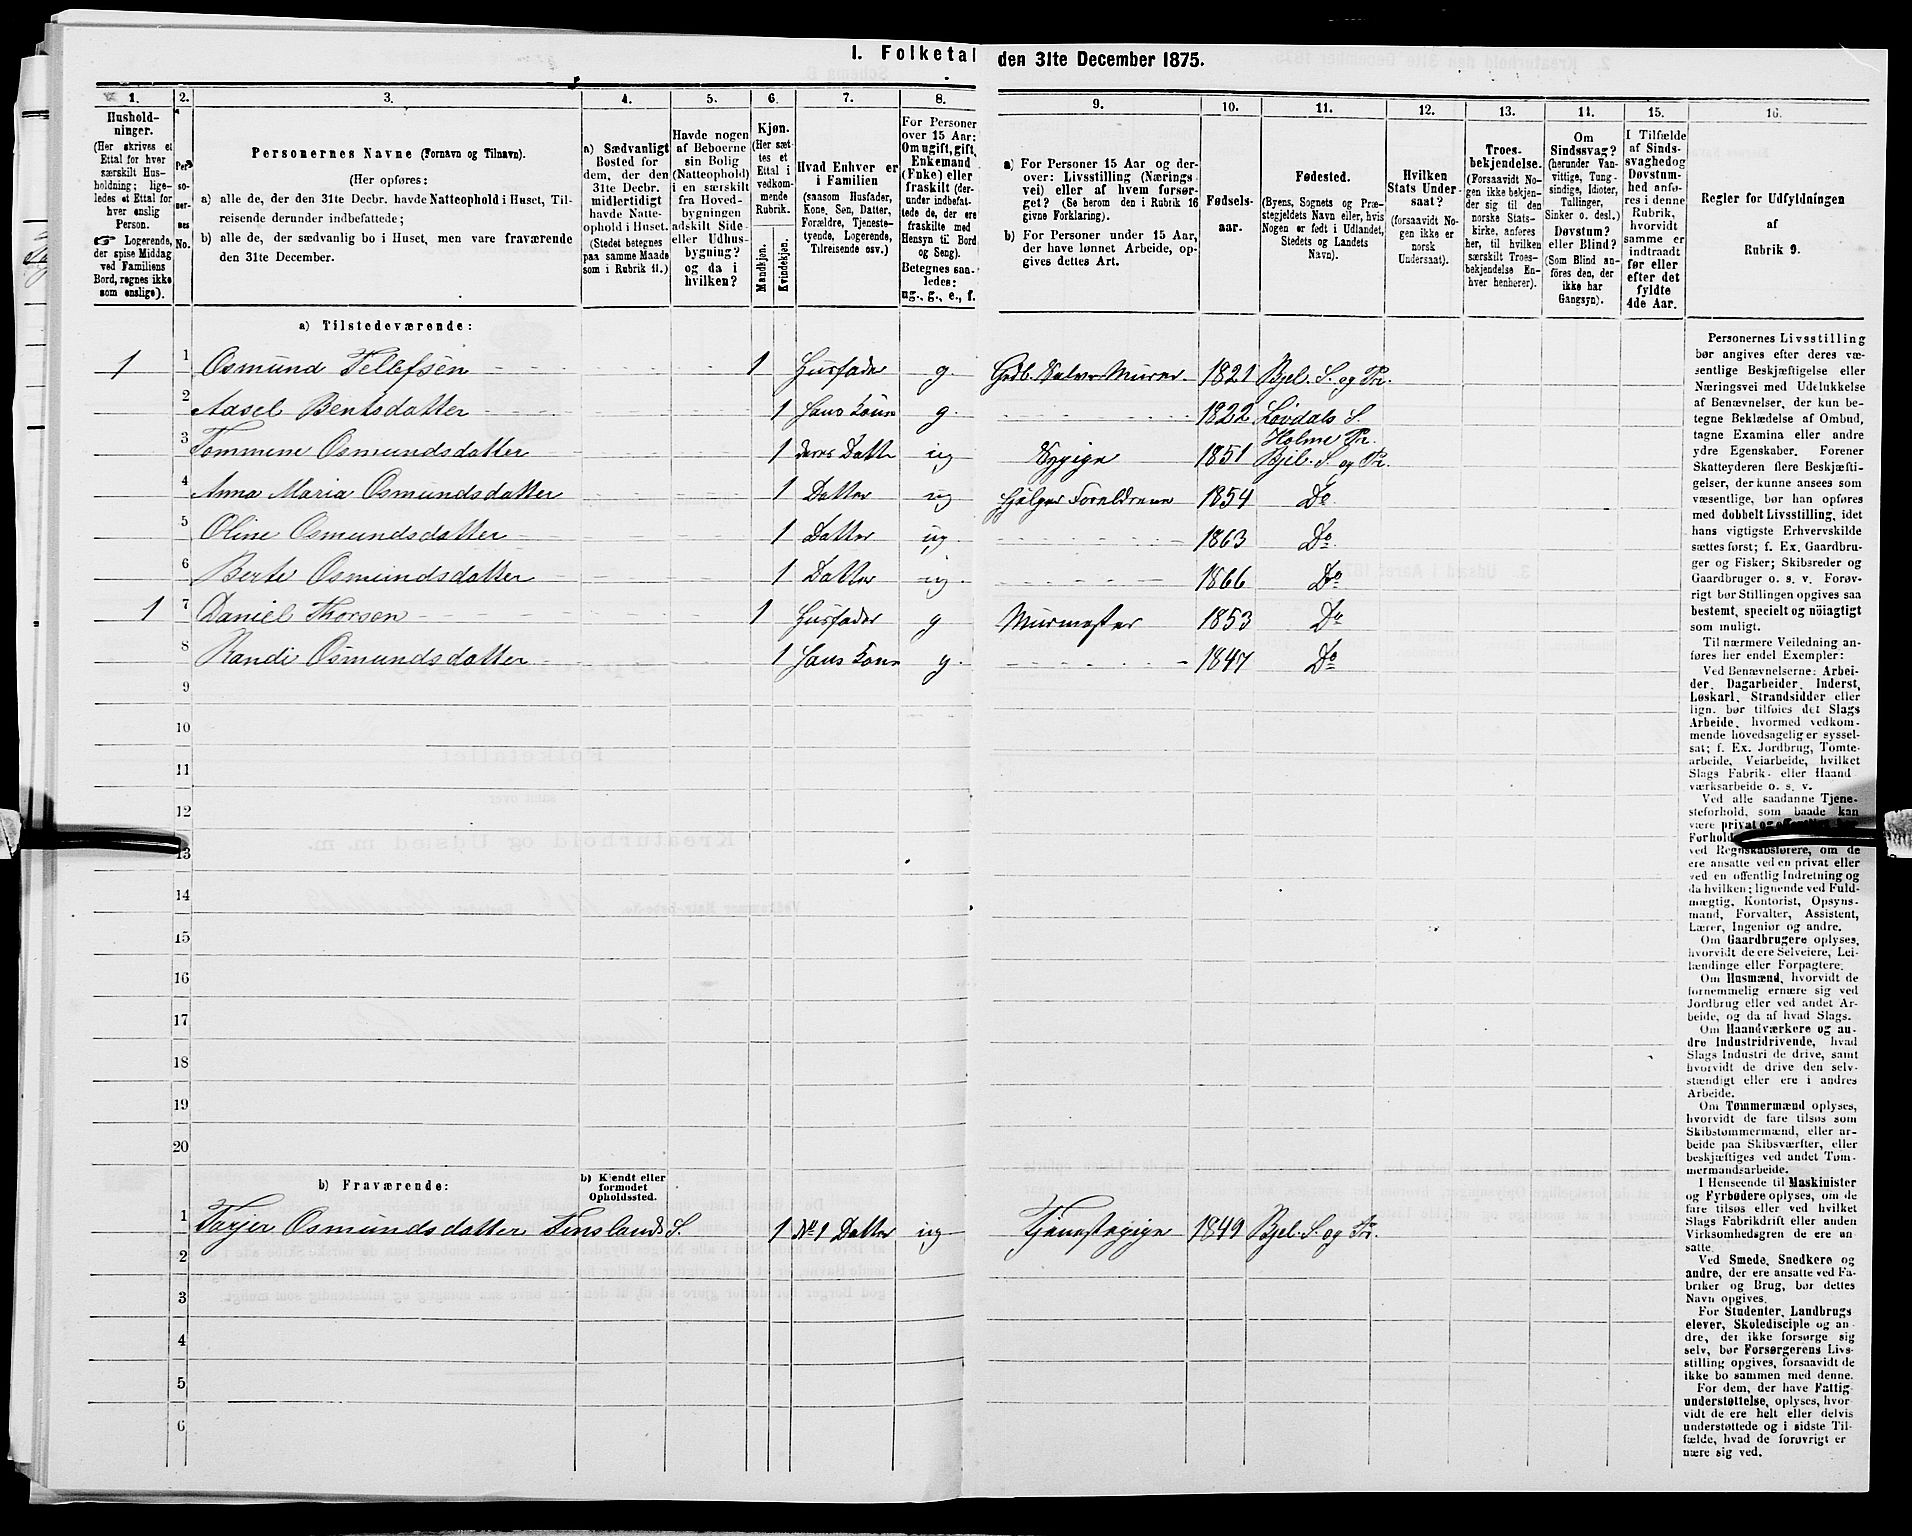 I. Folketal den 31te December 1875.
1. 2. 3. 4. 5. 6. 7. 8. 9. 10. 11. 12. 13. 14. 15. 16.
Hushold-
ninger.
(Her skrives et
Ettal for hver
særskilt Hus-
holdning; lige-
ledes et Ettal for
hver enslig
Person.
☞ Logerende,
der spise Middag
ved Familiens
Bord, regnes ikke
som enslige).
Per-
so-
ner-
nes
No.
Personernes Navne (Fornavn og Tilnavn).
(Her opføres:
a) alle de, der den 31te Decbr. havde Natteophold i Huset, Til-
reisende derunder indbefattede;
b) alle de, der sædvanlig bo i Huset, men vare fraværende
den 31te December.
a) Sædvanligt
Bosted for
dem, der den
31te Decbr.
midlertidigt
havde Natte-
ophold i Huset.
(Stedet betegnes
paa samme Maade
som i Rubrik 11.)
Havde nogen
af Beboerne
sin Bolig
(Natteophold)
i en særskilt
fra Hoved-
bygningen
adskilt Side-
eller Udhus-
bygning?
og da i
hvilken?
Kjøn.
(Her sæt-
tes et
Ettal i
vedkom-
mende
Rubrik.
Mandkjøn.
Kvindekjøn.
Hvad Enhver er
i Familien
(saasom Husfader,
Kone, Søn, Datter,
Forældre, Tjeneste-
tyende, Logerende,
Tilreisende osv.)
For Personer
over 15 Aar:
Om ugift, gift,
Enkemand
(Enke) eller
fraskilt (der-
under indbefat-
tede de, der ere
fraskilte med
Hensyn til Bord
og Seng).
Betegnes saa-
ledes:
ug., g., e., f.
a) For Personer 15 Aar og der-
over: Livsstilling (Nærings-
vei) eller af hvem forsør-
get? (Se herom den i Rubrik 16
givne Forklaring).
b) For Personer under 15 Aar,
der have lønnet Arbeide, op-
gives dettes Art.
Fødsels-
aar.
Fødested.
(Byens, Sognets og Præ-
stegjeldets Navn eller, hvis
Nogen er født i Udlandet,
Stedets og Landets
Navn).
Hvilken
Stats Under-
saat?
(forsaavidt No-
gen ikke er
norsk
Undersaat).
Troes-
bekjendelse.
(Forsaavidt No-
gen ikke bekjen-
der sig til den
norske Stats-
kirke, anføres
her, til hvilken
særskilt Troes-
bekjendelse En-
hver henhører).
Om
Sindssvag?
(herunder Van-
vittige, Tung-
sindige, Idioter,
Tullinger,
Sinker o. desl.)
Døvstum?
eller Blind?
(Som Blind an-
føres den, der
ikke har
Gangsyn).
I Tilfælde
af Sinds-
svaghed og
Døvstum-
hed anfø-
res i denne
Rubrik,
hvorvidt
samme er
indtraadt
før eller
efter det
fyldte
4de Aar.
Regler for Udfyldningen
af
Rubrik 9.
a) Tilstedeværende:
1 1 Osmund Tellefsen 1 Husfader g. Gdb. Selveier Murer 1821 Bjel. S. og Pr.
2 Aasel Bentsdatter 1 Hans Kone g. 1822 Løvdals S. Holme Pr.
3 Tommine Osmundsdatter 1 deres Datter ug Sypige 1851 Bjel. S og Pr.
4 Anna Maria Osmundsdatter 1 Datter ug hjelper Foreldrene 1854 Do
5 Oline Osmundsdatter 1 Datter ug. 1863 Do
6 Berte Osmundsdatter 1 Datter ug. 1866 Do
1 7 Daniel Thorsen 1 Husfader g Murmester 1853 Do
8 Randi Osmundsdatter 1 Hans Kone g. 1847 Do
9
10
11
12
13
14
15
16
17
18
19
20
b) Fraværende:
b) Kjendt eller
formodet
Opholdssted.
1 Tarjer Osmundsdatter Finsland S. 1 No 1 Datter ug Tjenestepige 1849 Bjel. S. og Pr.
2
3
4
5
6
Personernes Livsstilling
bør angives efter deres væ-
sentlige Beskjæftigelse eller
Næringsvei med Udelukkelse
af Benævnelser, der kun be-
tegne Beklædelse af Ombud,
tagne Examina eller andre
ydre Egenskaber. Forener
Skatteyderen flere Beskjæfti-
gelser, der kunne ansees som
væsentlige, bør han opføres
med dobbelt Livsstilling, idet
hans vigtigste Erhvervskilde
sættes først; f. Ex. Gaardbru-
ger og Fisker; Skibsreder og
Gaardbruger o. s. v. Forøv-
rigt bør Stillingen opgives saa
bestemt, specielt og nøiagtigt
som muligt.
Til nærmere Veiledning an-
føres her endel Exempler:
Ved Benævnelserne: Arbei-
der, Dagarbeider, Inderst,
Løskarl, Strandsidder eller
lign. bør tilføies det Slags
Arbeide, hvormed vedkom-
mende hovedsagelig er syssel-
sat; f. Ex. Jordbrug, Tomte-
arbeide, Veiarbeide, hvilket
Slags Fabrik- eller Haand
værksarbeide o. s. v.
Ved alle saadanne Tjene-
steforhold, som baade kan
være privat og offentligt, bør
Forhold
ved Regnskabsførere, om de
ere ansatte ved en privat eller
ved en offentlig Indretning og
da hvilken; lignende ved Fuld-
mægtig, Kontorist, Opsyns-
mand, Forvalter, Assistent,
Lærer, Ingeniør og andre.
Om Gaardbrugere oplyses,
hvorvidt de ere Selveiere, Lei-
lændinge eller Forpagtere.
Om Husmænd, hvorvidt de
fornemmelig ernære sig ved
Jordbrug eller ved andet Ar-
beide, og da af hvad Slags.
Om Haandværkere og an-
dre Industridrivende, hvad
Slags Industri de drive, samt
hvorvidt de drive den selv-
stændigt eller ere i andres
Arbeide.
Om Tømmermænd oplyses,
hvorvidt de fare tilsøs som
Skibstømmermænd, eller ar-
beide paa Skibsværfter, eller
beskjæftiges ved andet Tøm-
mermandsarbeide.
I Henseende til Maskinister
og Fyrbødere oplyses, om de
fare tilsøs eller ved hvilket
Slags Fabrikdrift eller anden
Virksomhedsgren de ere an-
satte.
Ved Smede, Snedkere og
andre, der ere ansatte ved Fa-
briker og Brug, bør dettes
Navn opgives.
For Studenter, Landbrugs
elever, Skoledisciple og an-
dre, der ikke forsørge sig
selv, bør Forsørgerens Livs-
stilling opgives, forsaavidt de
ikke bo sammen med denne.
For dem, der have Fattig-
understøttelse, oplyses, hvor-
vidt de ere helt eller delvis
understøttede og i sidste Til-
fælde, hvad de forøvrigt er
nære sig ved.